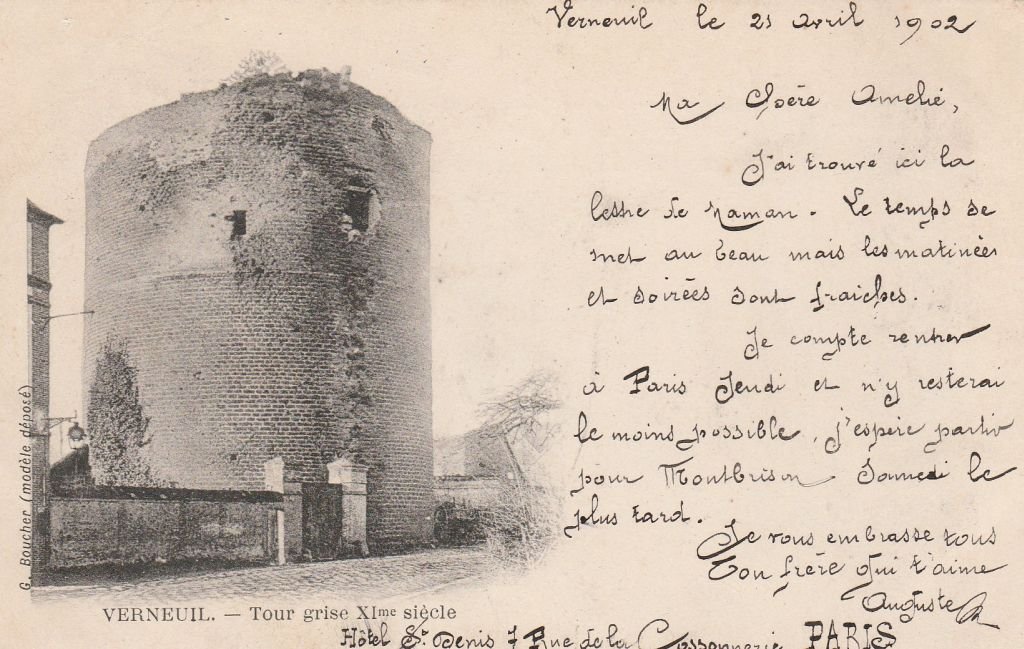 Verneuil le 21 avril 1902
Ma Chère Amelie,
J'ai trouvé ici la
lettre de Maman. Le temps se
met au beau mais les matinées
et soirées sont fraiches.
Je compte rentrer
à Paris Jeudi et n'y resterai
le moins possible, j'espère partir
pour Montbrison Samedi le
plus tard.
Je vous embrasse tous
Ton frère qui t'aime
Auguste
G. Boucher (modèle déposé)
VERNEUIL. — Tour grise XIme siècle
Hôtel St Denis 7 Rue de la Cossonnerie PARIS